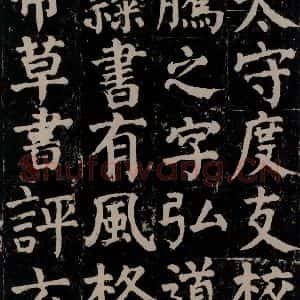 太守度支校
騰之字弘道
隸書有風格
帝草書評云
Shufawang.CN